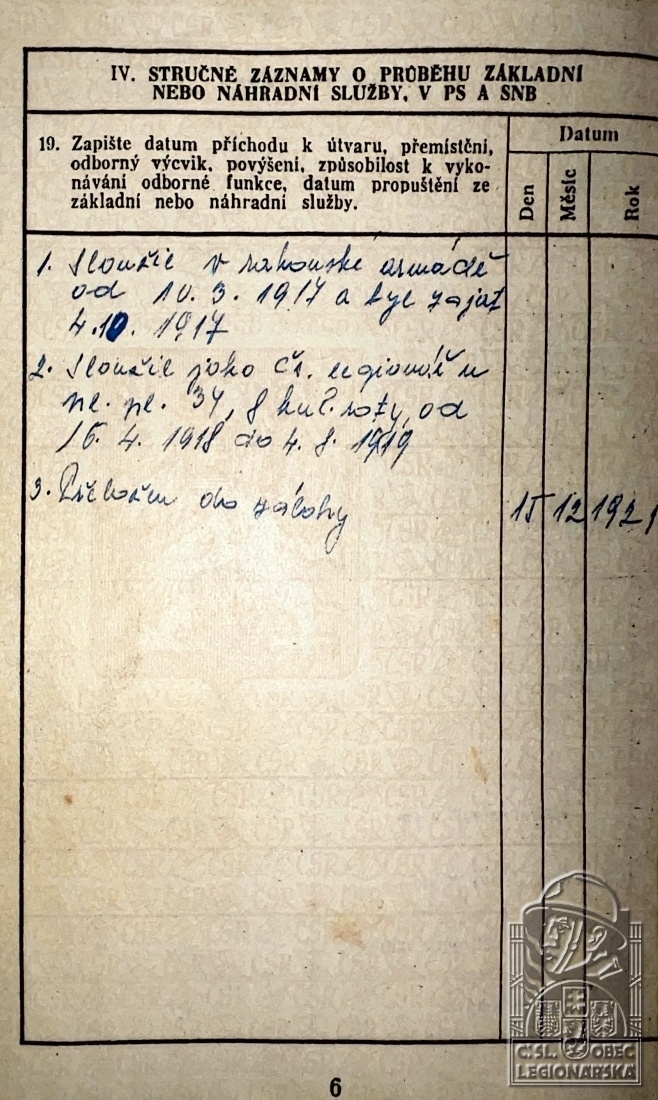 IV. STRUČNÉ ZÁZNAMY O PRŮBĚHU ZÁKLADNÍ
NEBO NÁHRADNÍ SLUŽBY, V PS A SNB
19. Zapište datum příchodu k útvaru, přemístění,
odborný výcvik, povýšení, způsobilost k vyko-
návání odborné funkce, datum propuštění ze
základní nebo náhradní služby.
Datum
Den
Měsíc
Rok
1. Sloužil v rakouské armádě
od 10. 3. 1917 a byl zajat
4.10. 1917
2. Sloužil jako čs. legionář u
pl. 34, 8 kul. roty, od
4. 1918 do 4. 8. 1919
3. Přeložen do zálohy 15 12
ČSL. OBEC
LEGIONÁŘSKÁ
6